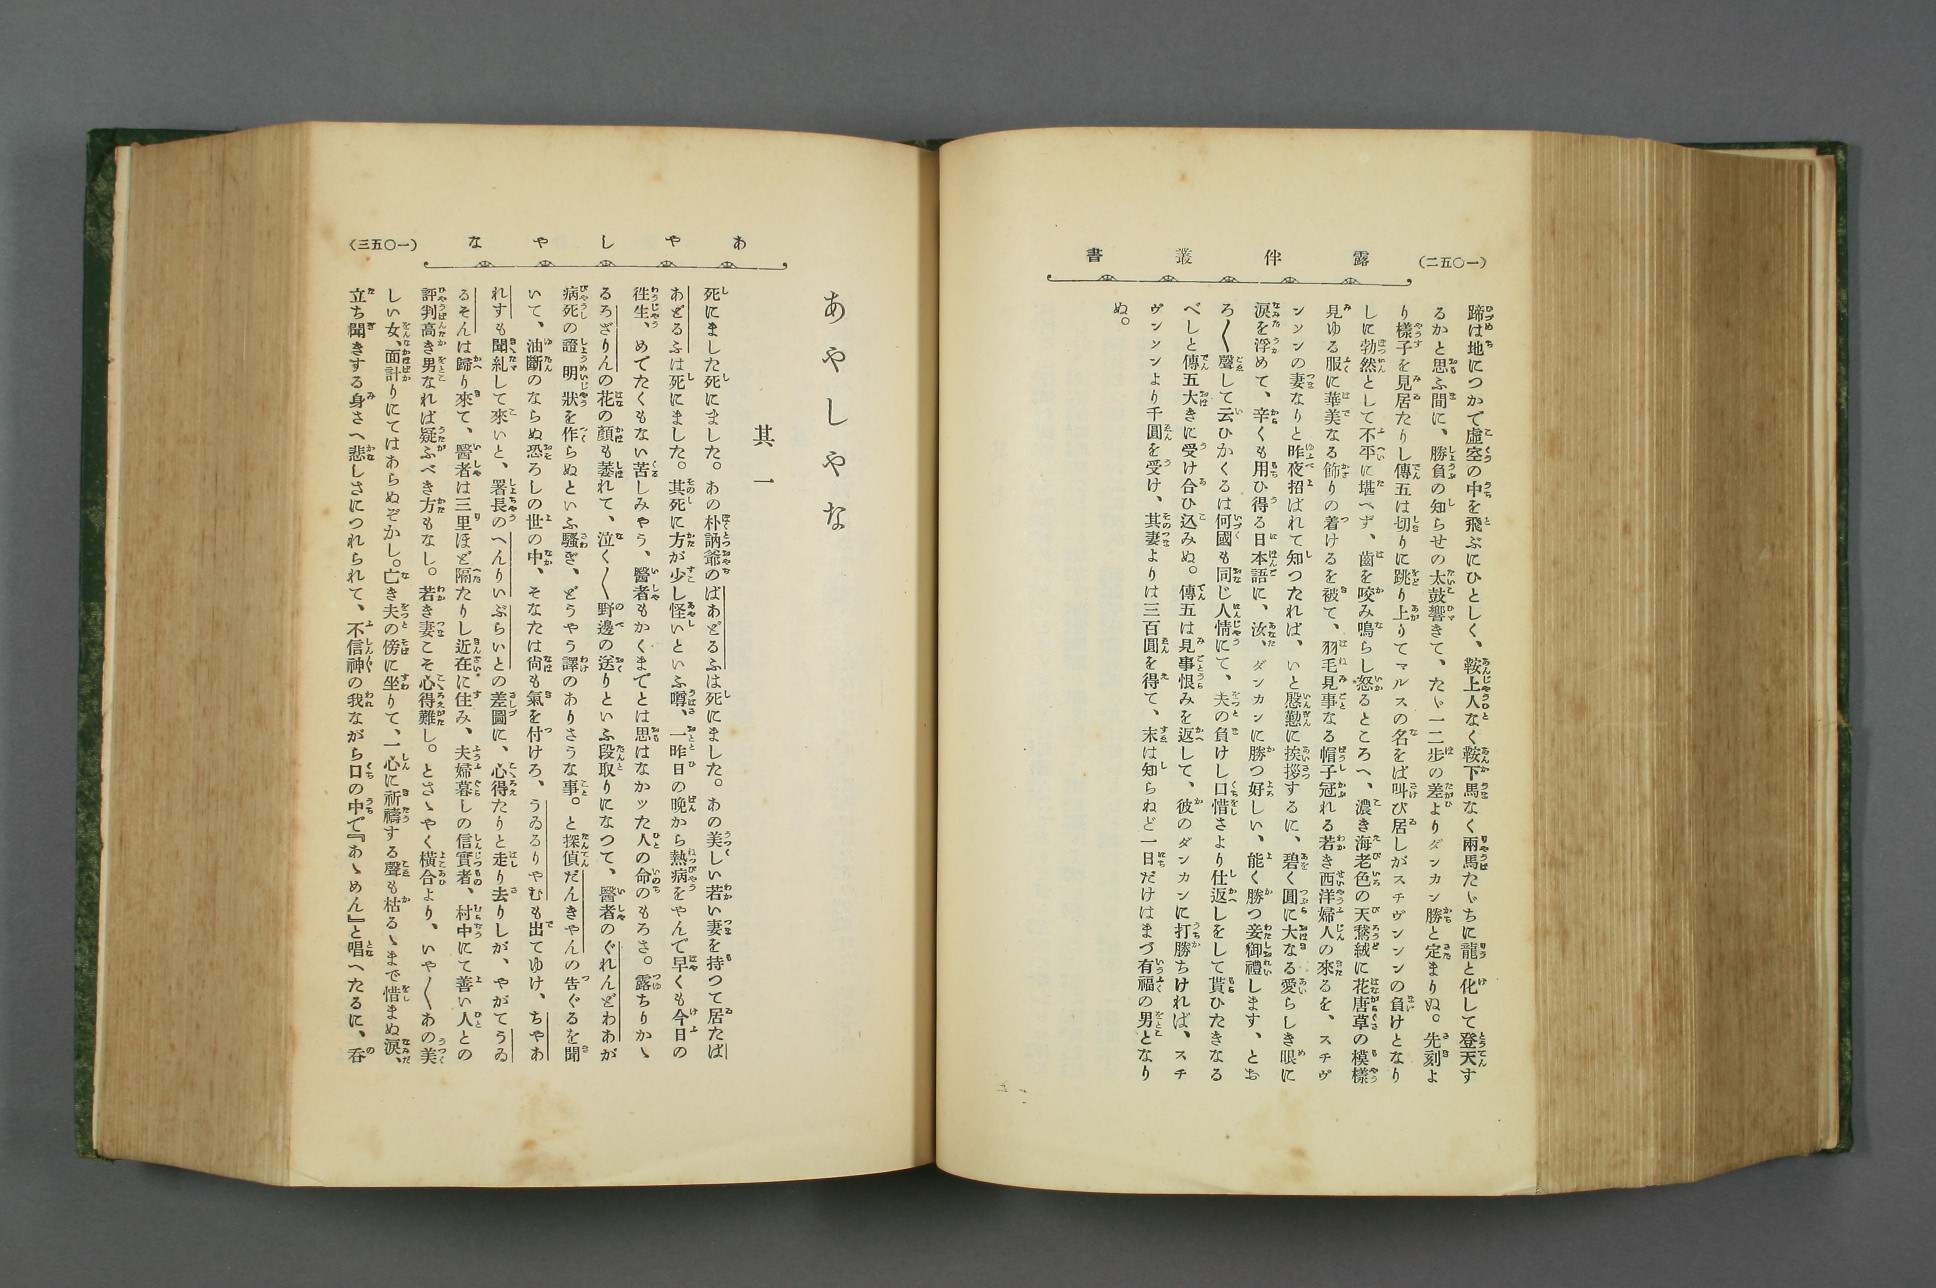 露伴叢書
(一〇五二)
蹄は地につかで虛空の中を飛ぶにひとしく、鞍上人なく鞍下馬なく兩馬たゞちに龍と化して登天す
るかと思ふ間に、勝負の知らせの太鼓響きて、たゞ一二歩の差よりダンカン勝と定まりぬ。先刻よ
り樣子を見居たりし傳五は切りに跳り上りてマルスの名をば叫び居しがスチヴンソンの負けとなり
しに勃然として不平に堪へず、齒を咬み鳴らし怒るところへ、濃き海老色の天鵞絨に花唐草の模樣
見ゆる服に華美なる飾りの着けるを被て、羽毛見事なる帽子冠れる若き西洋婦人の來るを、スチヴ
ンソンの妻なりと昨夜招ばれて知つたれば、いと慇懃に挨拶するに、碧く圓に大なる愛らしき眼に
淚を浮めて、辛くも用ひ得る日本語に、汝、ダンカンに勝つ好しい、能く勝つ妾御禮します、とお
ろ〱聲して云ひかくるは何國も同じ人情にて、夫の負けし口惜さより仕返しをして貰ひたきなる
べしと傳五大きに受け合ひ込みぬ。傳五は見事恨みを返して、彼のダンカンに打勝ちければ、スチ
ヴンソンより千圓を受け、其妻よりは三百圓を得て、末は知らねど一日だけはまづ有福の男となり
ぬ。
あやしやな
(一〇五三)
あやしやな
其一
死にました死にました。あの朴訥爺のばあどるふは死にました。あの美しい若い妻を持つて居たば
あどるふは死にました。其死に方が少し怪いといふ噂、一昨日の晩から熱病をやんで早くも今日の
徃生、めてたくもない苦しみやう、醫者もかくまでとは思はなかッた人の命のもろさ。露ちりかゝ
るろざりんの花の顏も萎れて、泣く〱野邊の送りといふ段取りになつて、醫者のぐれんどわあが
病死の證明狀を作らぬといふ騷ぎ、どうやう譯のありさうな事。と探偵だんきやんの告ぐるを聞
いて、油斷のならぬ恐ろしの世の中、そなたは尙も氣を付けろ、うゐるりやむも出てゆけ、ちやあ
れすも聞糺して來いと、署長のへんりいぶらいとの差圖に、心得たりと走り去りしが、やがてうゐ
るそんは歸り來て、醫者は三里ほど隔たりし近在に住み、夫婦暮しの信實者、村中にて善い人との
評判高き男なれば疑ふべき方もなし。若き妻こそ心得難し。とさゝやく橫合より、いや〱あの美
しい女、面計りにてはあらぬぞかし。亡き夫の傍に坐りて、一心に祈禱する聲も枯るゝまで惜まぬ淚、
立ち聞きする身さへ悲しさにつれられて、不信神の我ながら口の中で『あゝめん』と唱へたるに、呑